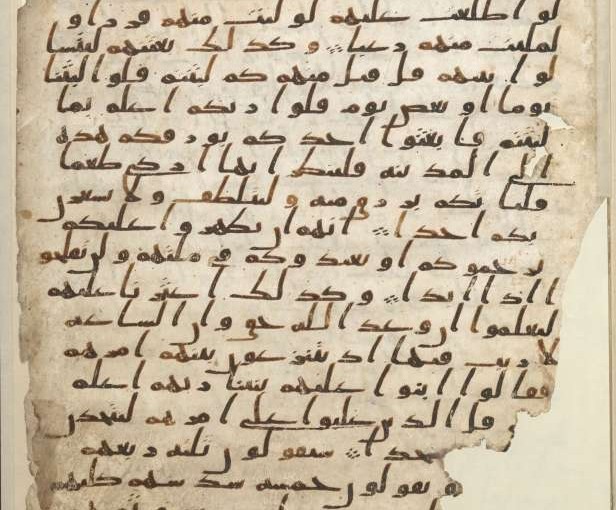 لو اطلعت عليهم لوليت منهم فررا و
لملئت منهم رعبا وكذلك بعثنهم ليتسا
لوا بينهم قل قيل منهم كم لبثتم قلوا لبثنا
يوما او بعض يوم قلوا ربكم اعلم بما
لبثتم فابعثوا احدكم بورقكم هذه
الى المدينه فلينظر ايها ازكى طعما
فلياتكم برزق منه وليتلطف ولا يشعرن
بكم احدا انهم ان يظهروا عليكم
يرجموكم او يعيدوكم في ملتهم ولن تفلحو
ا اذا ابدا وكذلك اعثرنا عليهم
ليعلموا ان وعد الله حق وان الساعه
لا ريب فيها اذ يتنزعون بينهم امرهم
فقالوا ابنوا عليهم بنينا ربهم اعلم
قل الذين غلبوا على امرهم لنتخذن
جدا سيقولون ثلثه ربعهم
يقولون خمسه سدسهم كلبهم